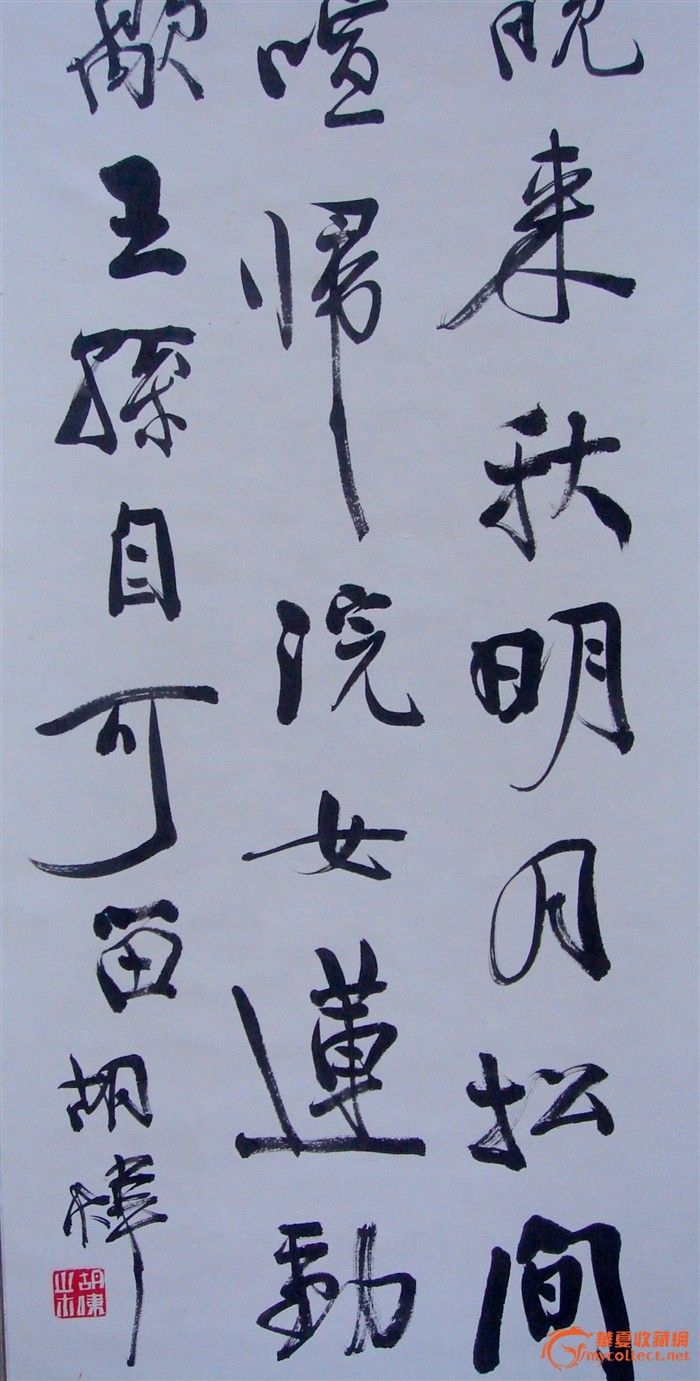 晚来秋明月松间
喧帰浣女蓮動
歇王孫自可留
胡
華夏收藏網
mycollect.net